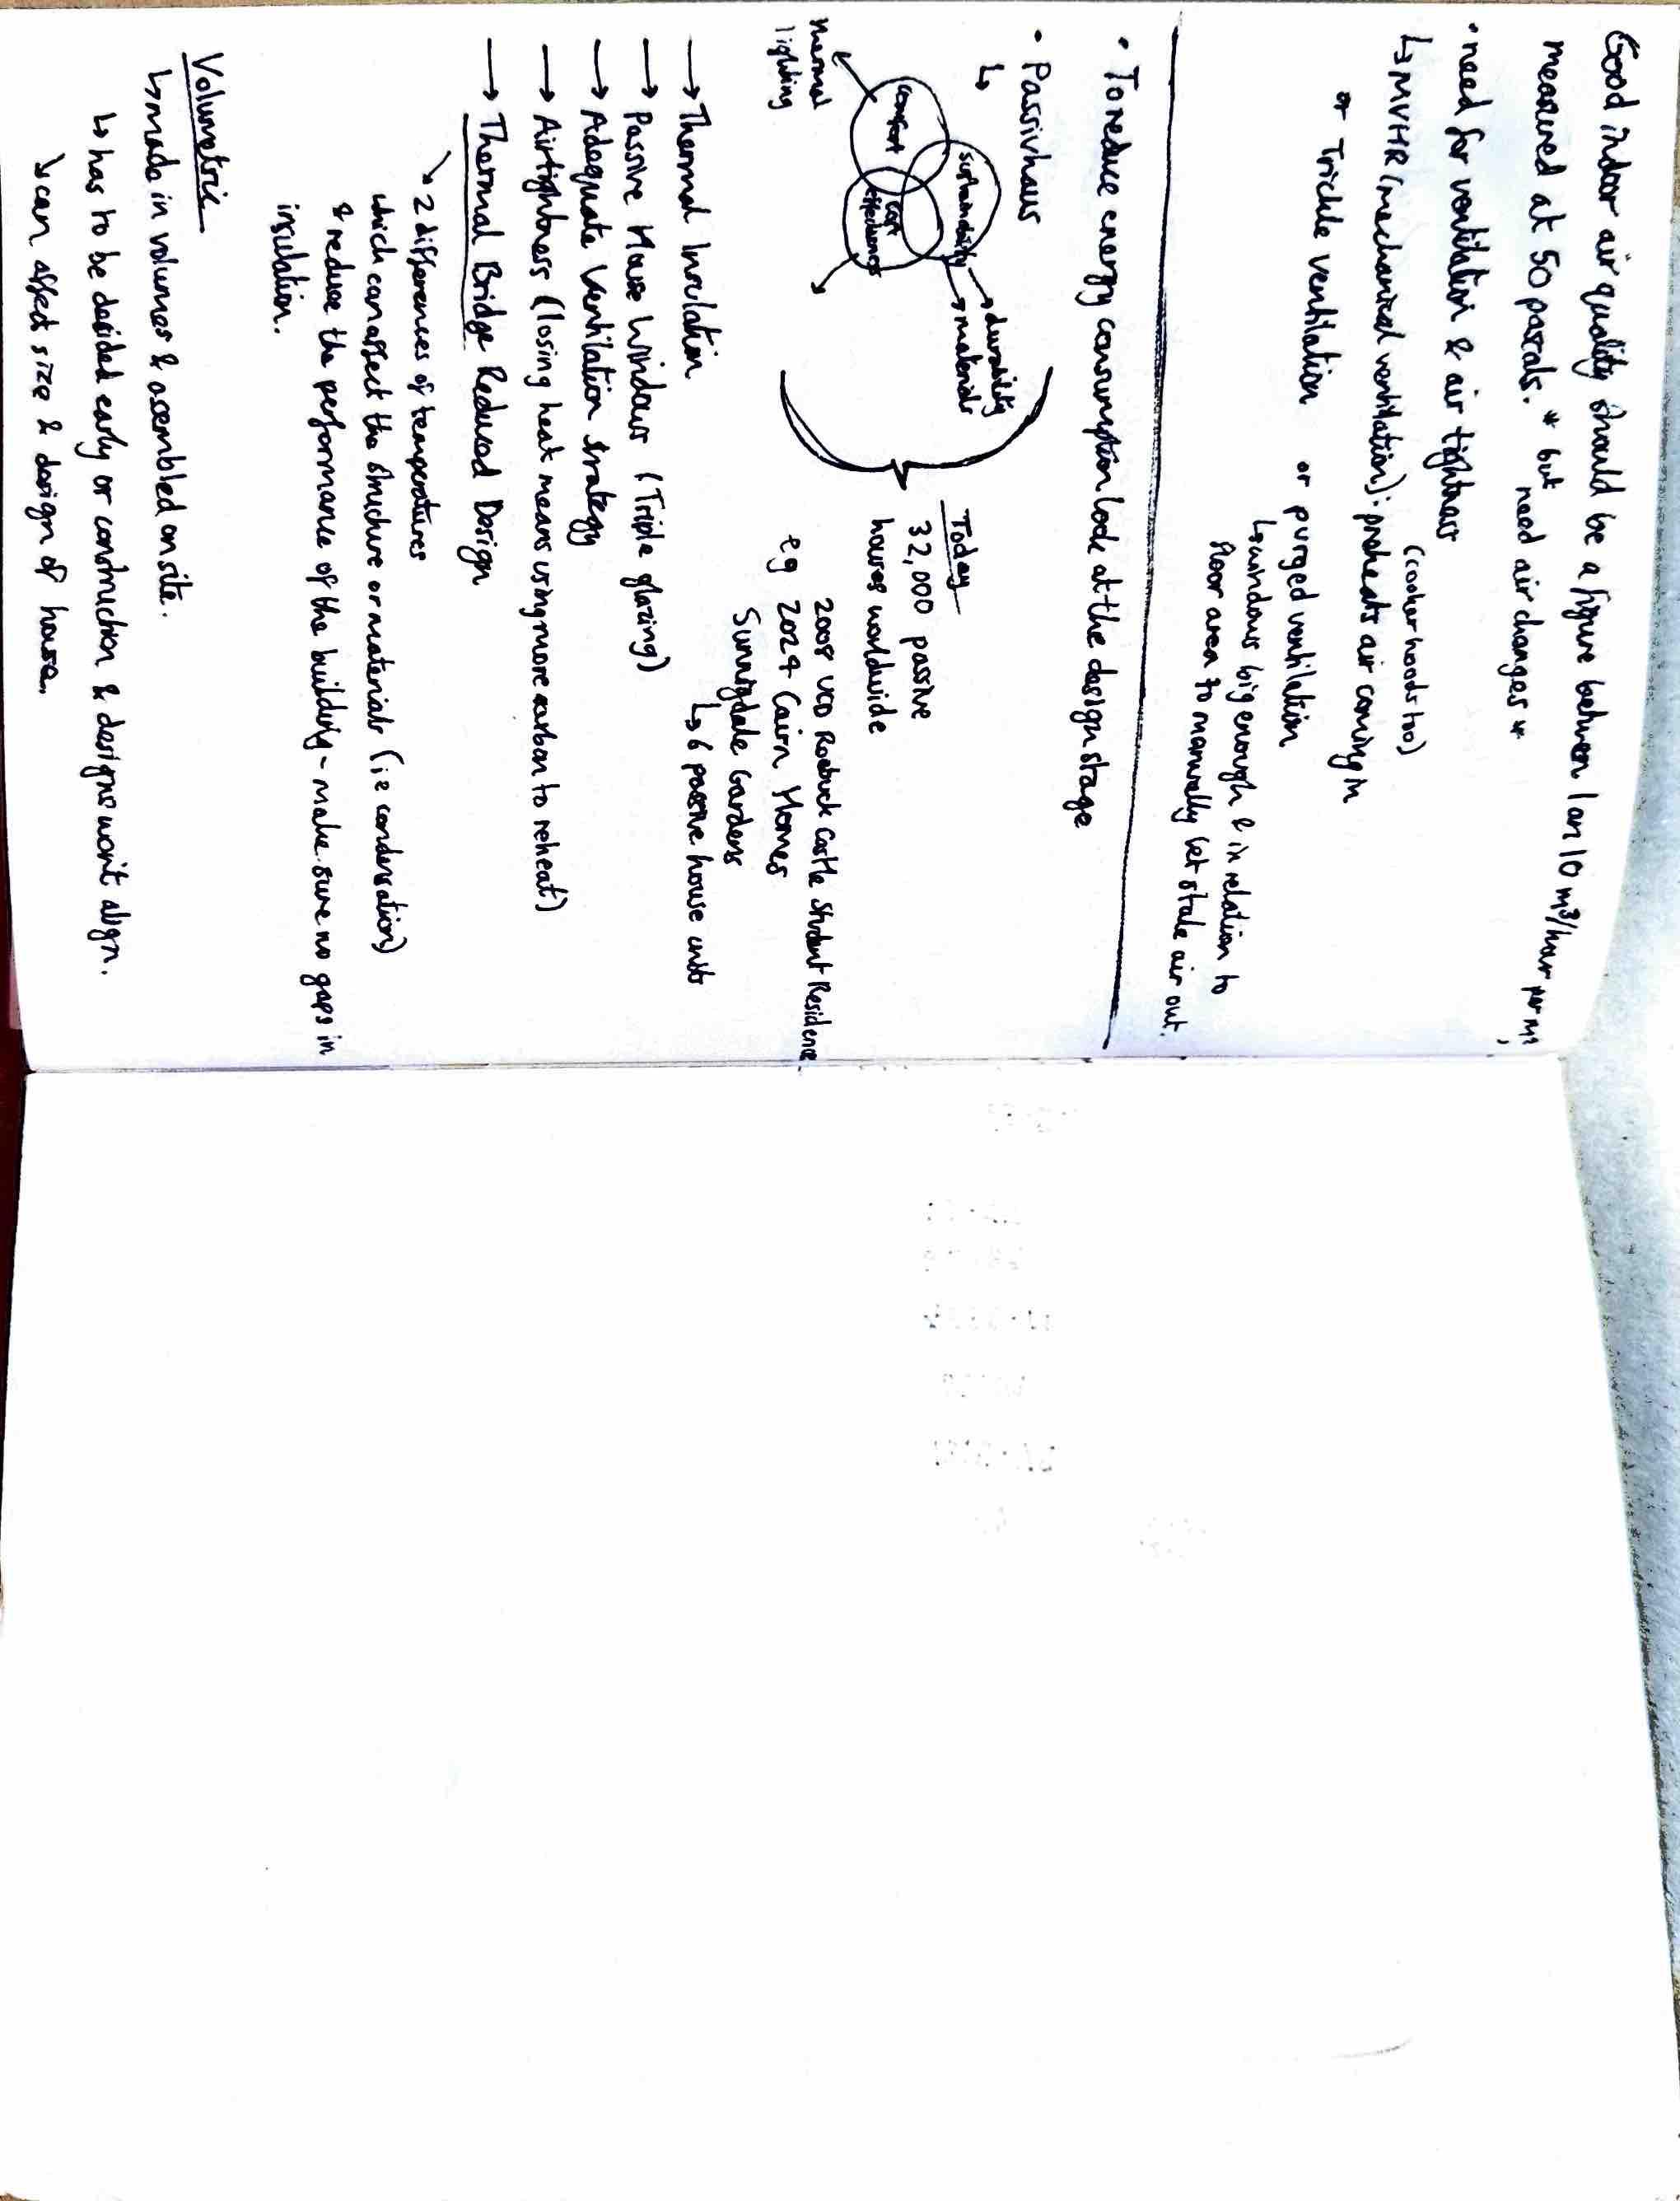 Good indoor air quality should be a figure between 1 an 10 m³/hour per m²,
measured at 50 pascals. * but need air changes *
• need for ventilation & air tightness
(cooker hoods too)
↳ MVHR (mechanical ventilation): preheats air coming in
or Trickle ventilation or purged ventilation
↳ windows big enough & in relation to
floor area to manually let stale air out.
• To reduce energy consumption look at the design stage
• Passivhaus
↳
sustainability
comfort
cost
effectiveness
→ durability
→ materials
thermal
lighting
Today
32,000 passive
houses worldwide
eg 2008 UCD Roebuck Castle Student Residence
2024 Cairn Homes
Sunnigdale Gardens
↳ 6 passive house units
→ Thermal Insulation
→ Passive House Windows (Triple glazing)
→ Adequate Ventilation strategy
→ Airtightness (losing heat means using more carbon to reheat)
→ Thermal Bridge Reduced Design
↘ 2 differences of temperatures
which can affect the structure or materials (i.e condensation)
& reduse the performance of the building - make sure no gaps in
insulation.
Volumetric
↳ made in volumes & assembled on site.
↳ has to be decided early or construction & designs won't align.
↘ can affect size & design of house.